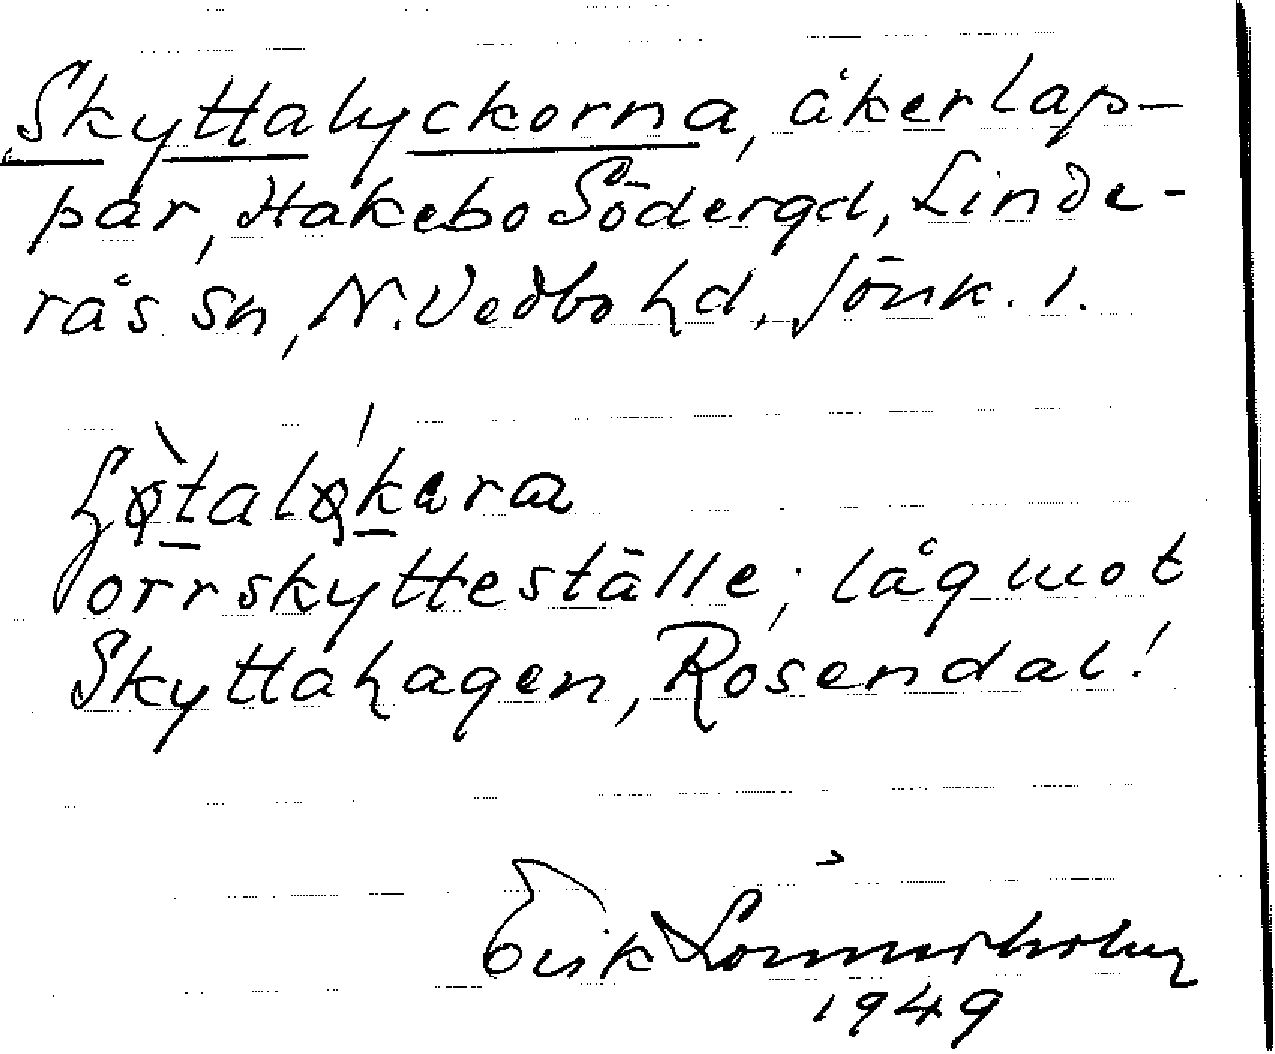 Skyttalyckorna, åkerlap-
par, Hakebo Södergd, Linde-
rås sn, N. Vedbo hd, Jönk. l.
orrskytteställe; låg mot
Skyttahagen, Rosendal!
Erik
1949